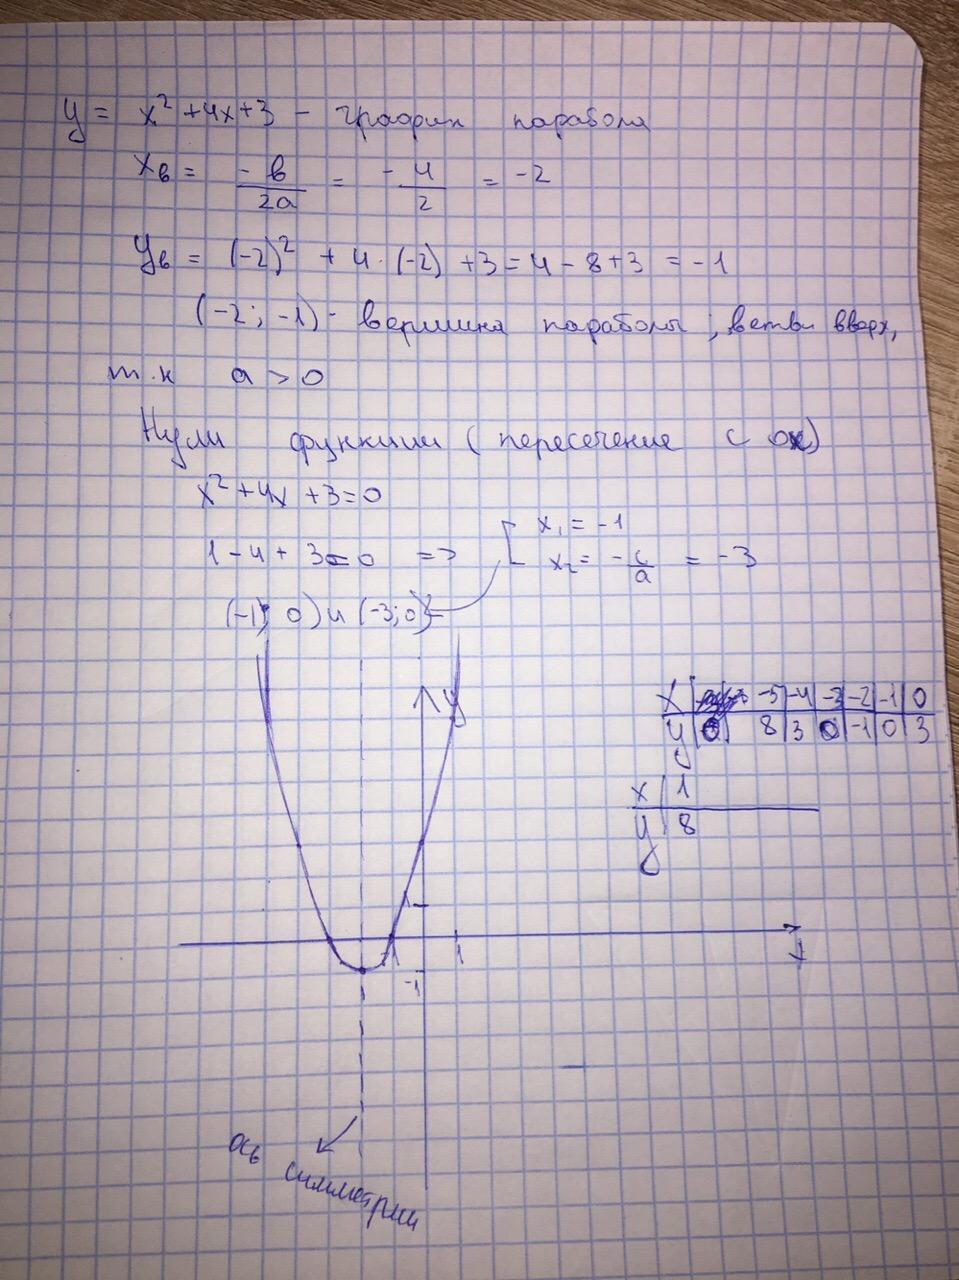 y = x² + 4x + 3 - график парабола
xв = -в/2а = -4/2 = -2
yв = (-2)² + 4·(-2) + 3 = 4 - 8 + 3 = -1
(-2; -1) - вершина параболы; ветви вверх,
т.к а > 0
Нули функции (пересечение с ох)
x² + 4x + 3 = 0
1 - 4 + 3 = 0 => [ x₁ = -1
x₂ = -c/a = -3
(-1; 0) и (-3; 0)
y
x | -5 | -4 | -3 | -2 | -1 | 0
y | 8 | 3 | 0 | -1 | 0 | 3
x | 1
y | 8
1
-1
1
-1
ось симметрии